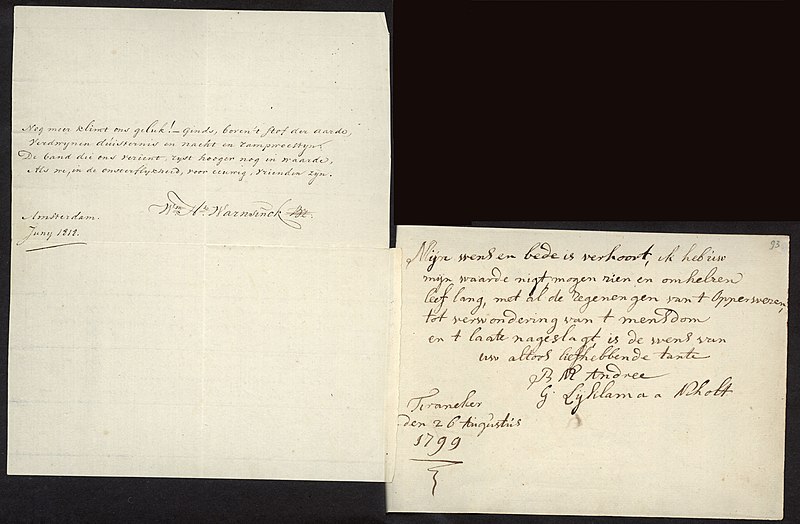 Nog meer klimt ons geluk! – Ginds, boven't stof der aarde,
Verdwynen duisternis en nacht en rampwoestyn.
De band die ons vereent, ryst hooger nog en waarde,
Als we, in de onsterflykheid, voor eeuwig, vrienden zyn.
Wm Hk Warnsinck Bz.
Amsterdam.
Juny 1818.
93
Mijn wens en bede is verhoort, ik heb uw
mijn waarde nigt mogen zien en omhelzen
leef lang, met al de zegeningen van t Opperwezen,
tot verwondering van t mensdom
en t laate nageslagt, is de wens van
uw altoos liefhebbende tante
Andree
G. Lijklama a Nholt
Franeker
den 26 Augustus
1799